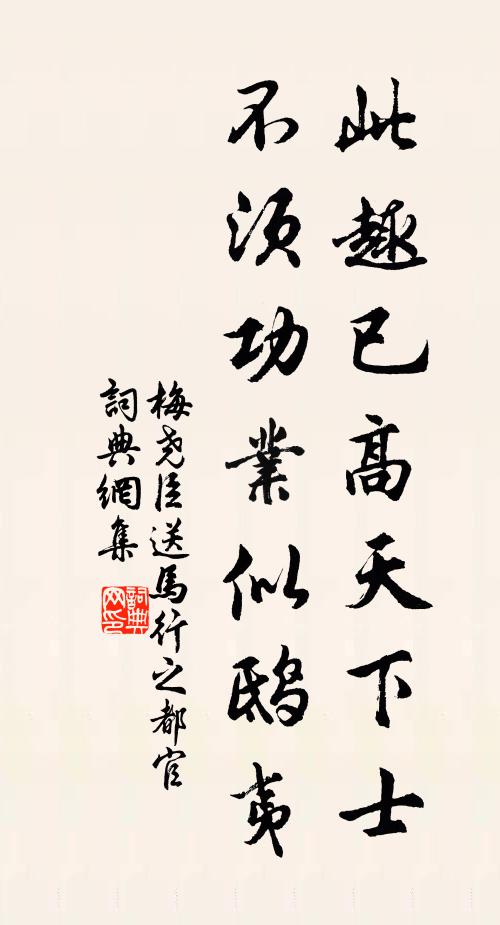 此趣已高天下士
不須功業似鴟夷
梅堯臣送馬行之都官
詞典網集
詞典网印